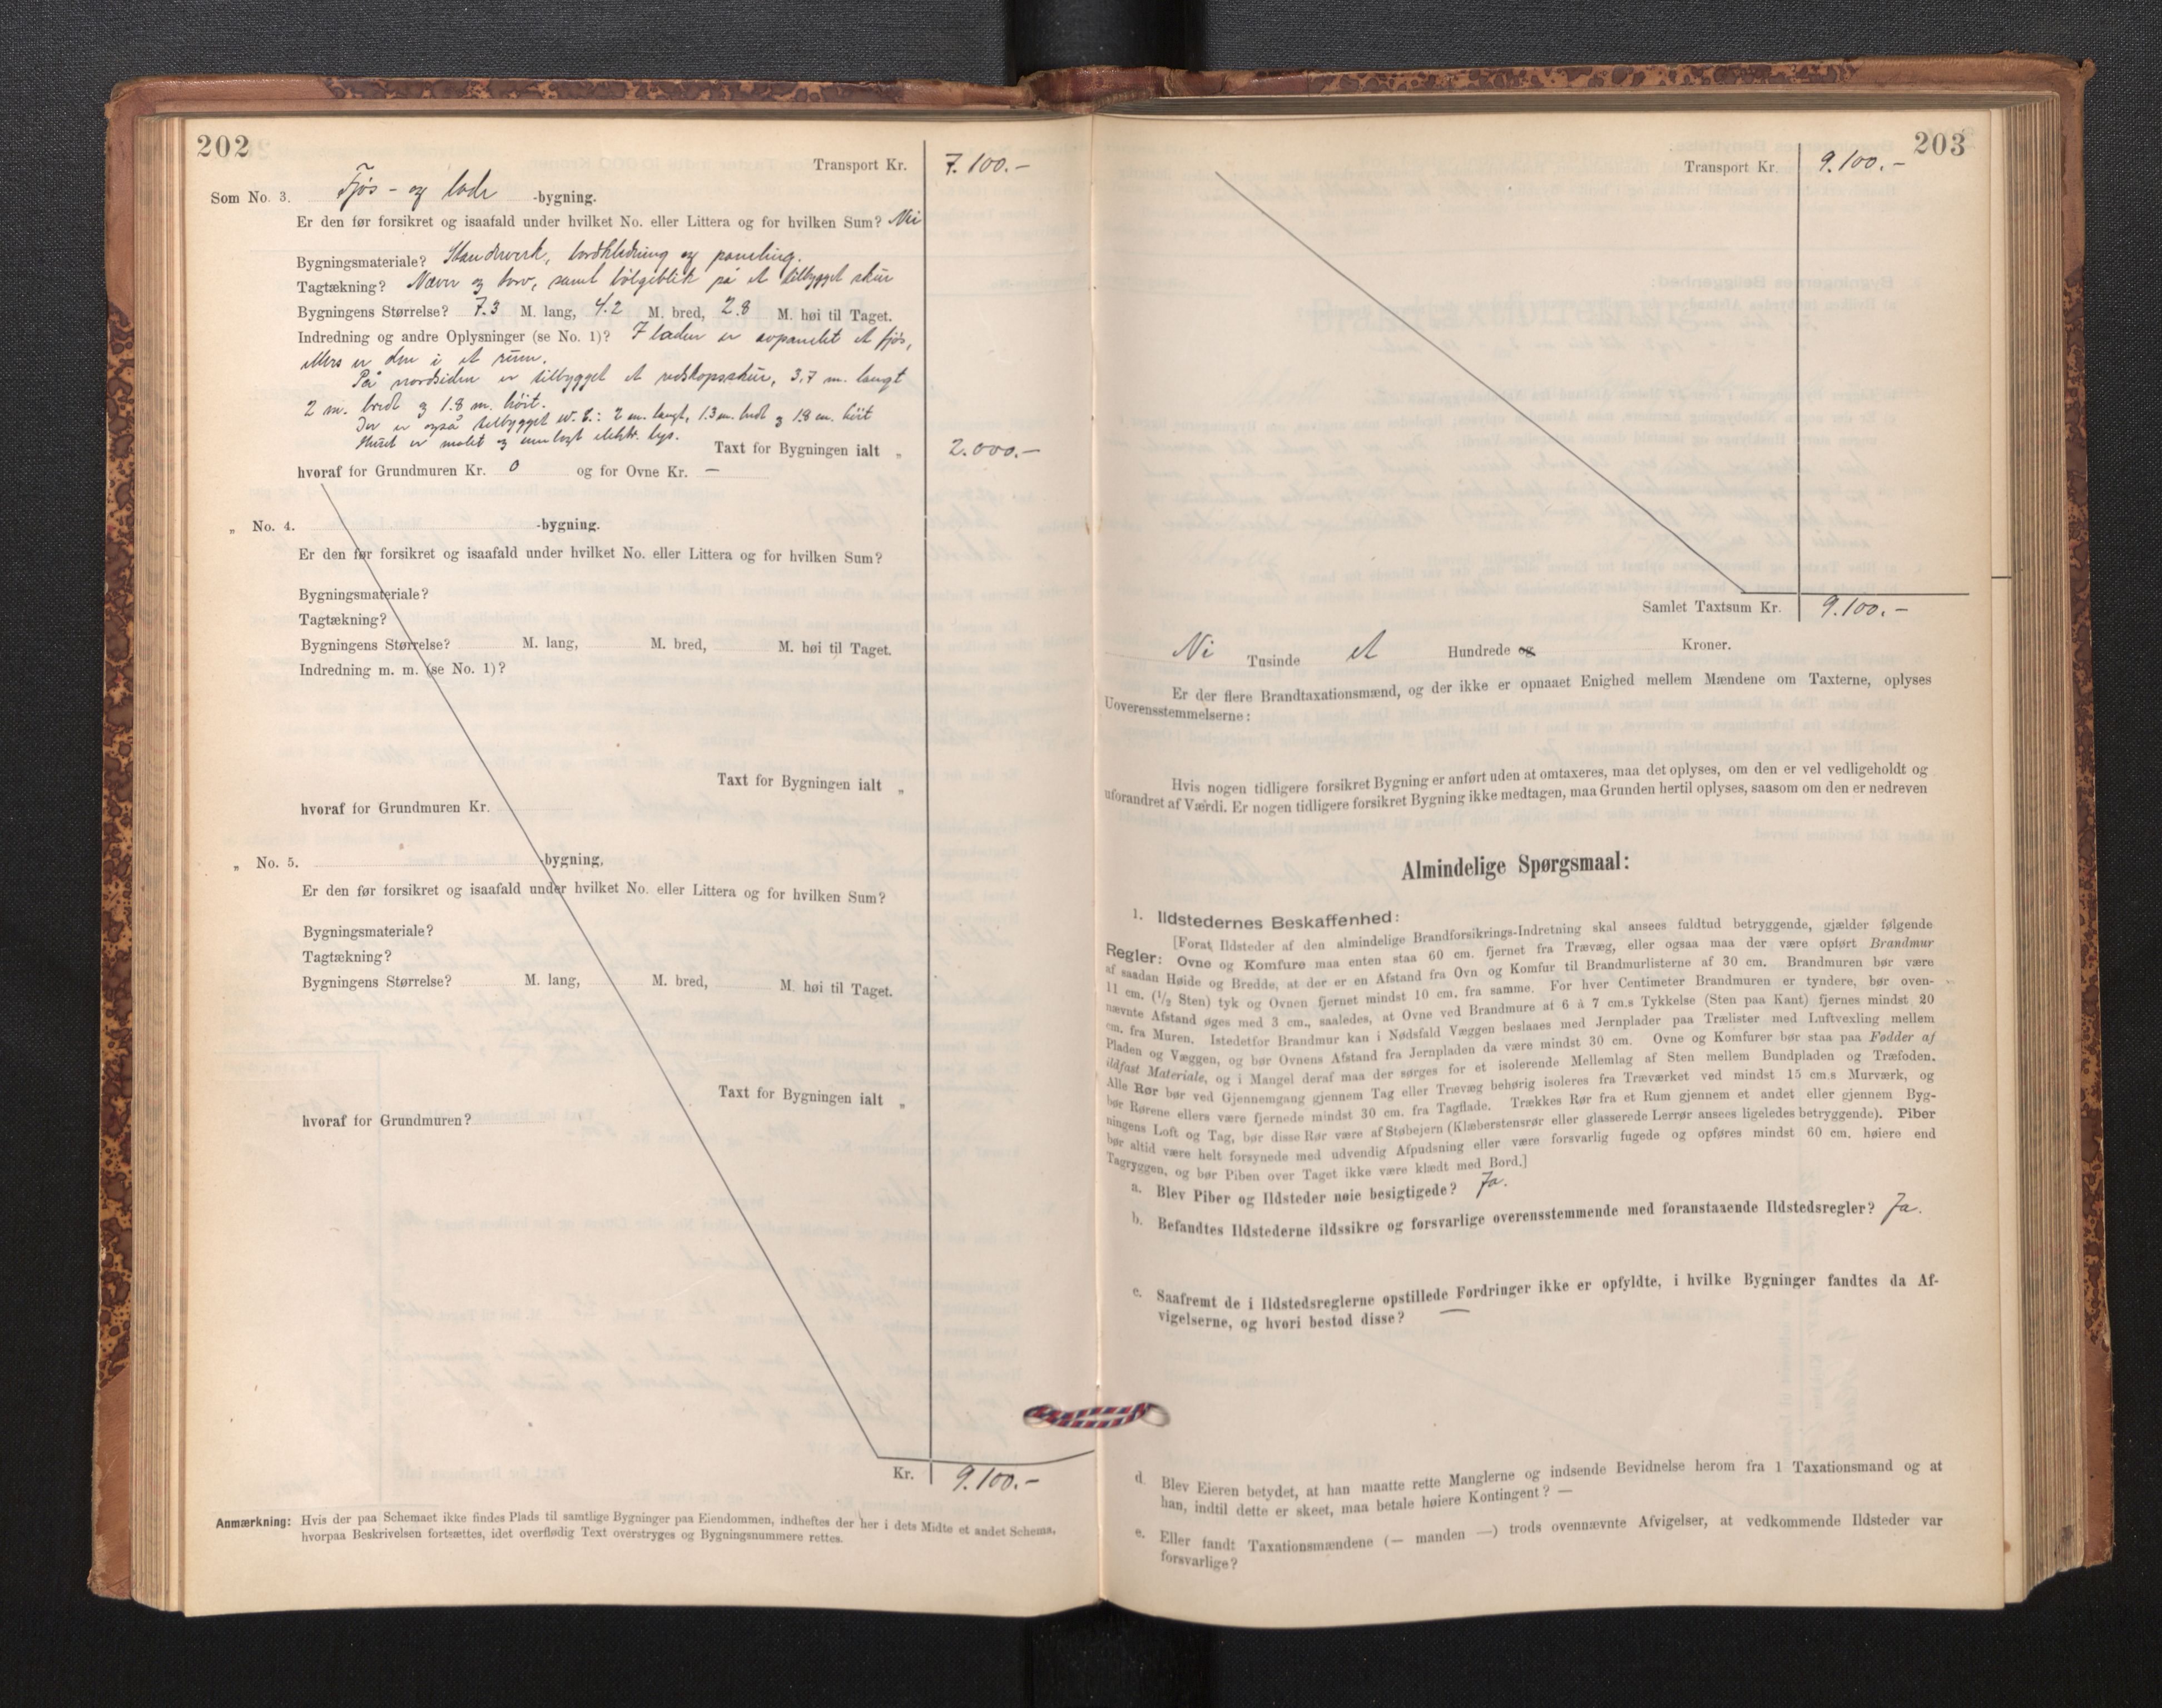 202
Transport Kr. 7.100.-
Som No. 3. Fjøs - og lade -bygning.
Er den før forsikret og isaafald under hvilket No. eller Littera og for hvilken Sum? Nei
Bygningsmateriale? Standverk, bordkledning og paneling.
Tagtækning? Næver og torv, samt bölgeblik på et tilbygget skur
Bygningens Størrelse? 7.3 M. lang, 4.2 M. bred, 2.8 M. høi til Taget.
Indredning og andre Oplysninger (se No. 1)? I laden er avpanelet et fjøs,
ellers er den i et rum.
På nordsiden er tilbygget et redskapsskur, 3,7 m. langt
2 m. bredt og 1.8 m. höit.
Der er også tilbygget w. c.: 2 m. langt, 1.3 m. bredt og 1.8 m. höit
Huset er malet og innlagt elektr. lys.
Taxt for Bygningen ialt „ 2.000.-
hvoraf for Grundmuren Kr. 0 og for Ovne Kr. —
„ No. 4. -bygning.
Er den før forsikret og isaafald under hvilket No. eller Littera og for hvilken Sum?
Bygningsmateriale?
Tagtækning?
Bygningens Størrelse? M. lang, M. bred, M. høi til Taget.
Indredning m. m. (se No. 1)?
Taxt for Bygningen ialt „
hvoraf for Grundmuren Kr.
„ No. 5. -bygning,
Er den før forsikret og isaafald under hvilket No. eller Littera og for hvilken Sum?
Bygningsmateriale?
Tagtækning?
Bygningens Størrelse? M. lang, M. bred, M. høi til Taget.
Taxt for Bygningen ialt „
hvoraf for Grundmuren?
Kr. 9.100.-
Anmærkning: Hvis der paa Schemaet ikke findes Plads til samtlige Bygninger paa Eiendommen, indheftes der her i dets Midte et andet Schema,
hvorpaa Beskrivelsen fortsættes, idet overflødig Text overstryges og Bygningsnummere rettes.
203
Transport Kr. 9.100.-
Samlet Taxtsum Kr. 9.100.-
Ni Tusinde et Hundrede og Kroner.
Er der flere Brandtaxationsmænd, og der ikke er opnaaet Enighed mellem Mændene om Taxterne, oplyses
Uoverensstemmelserne:
Hvis nogen tidligere forsikret Bygning er anført uden at omtaxeres, maa det oplyses, om den er vel vedligeholdt og
uforandret af Værdi. Er nogen tidligere forsikret Bygning ikke medtagen, maa Grunden hertil oplyses, saasom om den er nedreven
Almindelige Spørgsmaal:
1. Ildstedernes Beskaffenhed:
[Forat Ildsteder af den almindelige Brandforsikrings-Indretning skal ansees fuldtud betryggende, gjælder følgende
Regler: Ovne og Komfure maa enten staa 60 cm. fjernet fra Trævæg, eller ogsaa maa der være opført Brandmur
af saadan Høide og Bredde, at der er en Afstand fra Ovn og Komfur til Brandmurlisterne af 30 cm. Brandmuren bør være
11 cm. (1/2 Sten) tyk og Ovnen fjernet mindst 10 cm. fra samme. For hver Centimeter Brandmuren er tyndere, bør oven-
nævnte Afstand øges med 3 cm., saaledes, at Ovne ved Brandmure af 6 à 7 cm.s Tykkelse (Sten paa Kant) fjernes mindst 20
cm. fra Muren. Istedetfor Brandmur kan i Nødsfald Væggen beslaaes med Jernplader paa Trælister med Luftvexling mellem
Pladen og Væggen, og bør Ovnens Afstand fra Jernpladen da være mindst 30 cm. Ovne og Komfurer bør staa paa Fødder af
ildfast Materiale, og i Mangel deraf maa der sørges for et isolerende Mellemlag af Sten mellem Bundpladen og Træfoden.
Alle Rør bør ved Gjennemgang gjennem Tag eller Trævæg behørig isoleres fra Træværket ved mindst 15 cm.s Murværk, og
bør Rørene ellers være fjernede mindst 30 cm. fra Tagflade. Trækkes Rør fra et Rum gjennem et andet eller gjennem Byg-
ningens Loft og Tag, bør disse Rør være af Støbejern (Klæberstensrør eller glasserede Lerrør ansees ligeledes betryggende). Piber
bør altid være helt forsynede med udvendig Afpudsning eller være forsvarlig fugede og opføres mindst 60 cm. høiere end
Tagryggen, og bør Piben over Taget ikke være klædt med Bord.]
a. Blev Piber og Ildsteder nøie besigtigede? Ja.
b. Befandtes Ildstederne ildssikre og forsvarlige overensstemmende med foranstaaende Ildstedsregler? Ja.
c. Saafremt de i Ildstedsreglerne opstillede Fordringer ikke er opfyldte, i hvilke Bygninger fandtes da Af-
vigelserne, og hvori bestod disse? —
d. Blev Eieren betydet, at han maatte rette Manglerne og indsende Bevidnelse herom fra 1 Taxationsmand og at
han, indtil dette er skeet, maa betale høiere Kontingent? —
e. Eller fandt Taxationsmændene (— manden —) trods ovennævnte Afvigelser, at vedkommende Ildsteder var
forsvarlige?